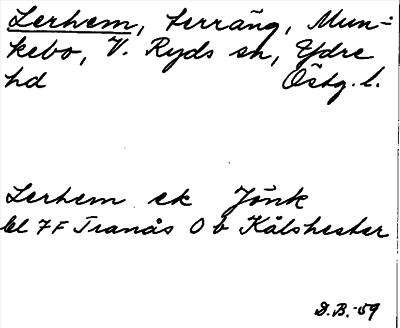 Lerhem, terräng, Mun-
kebo, V. Ryds sn, Ydre
hd Östg. l.
Lerhem ek Jönk
bl 7F Tranås O b Kålshester
D.B.-59